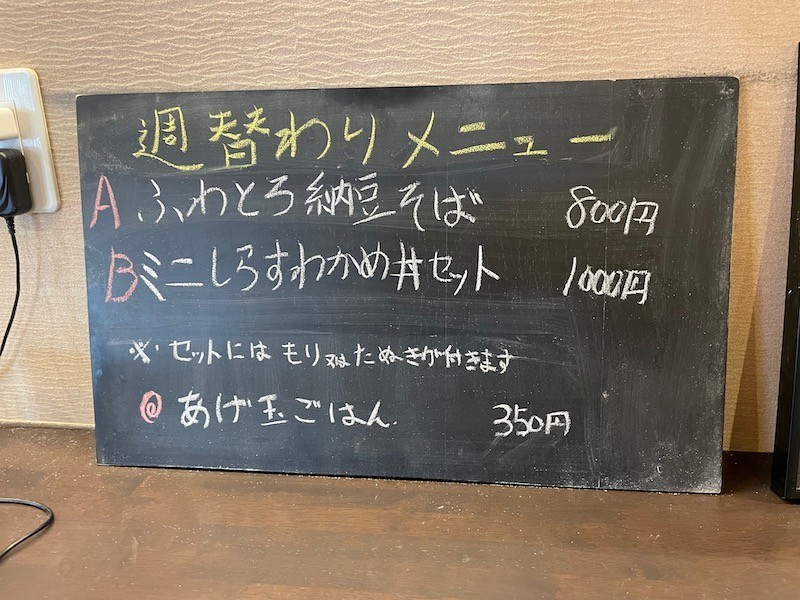 週替わりメニュー
A ふわとろ納豆そば 800円
B ミニしらすわかめ丼セット 1000円
※ セットには もり又はたぬきが付きます
◎ あげ玉ごはん 350円